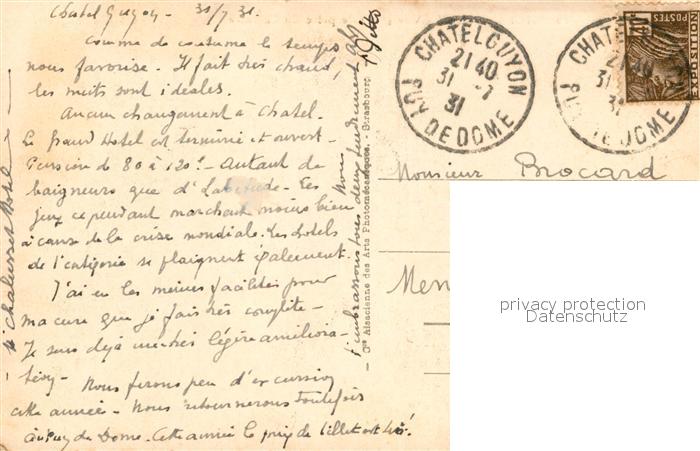 Chatel Guyon - 31/7 31.
Comme de coutume le temps
nous favorise - Il fait très chaud,
les nuits sont idéales.
Aucun changement à Chatel.
Le Grand Hotel est terminé et ouvert -
Pension de 80 à 120f - Autant de
baigneurs que d'habitude - Les
jeux cependant marchent moins bien
à cause de la crise mondiale. Les hotels
de 1e catégorie se plaignent également.
J'ai eu les mêmes facilités pour
ma cure que je fais très complète -
Je sens déjà une très légère améliora-
tion - Nous ferons peu d'excursions
cette année - Nous retournerons toutefois
au Puy de Dome. Cette année le prix de billet est
Nous
embrassons tous deux tendrement
Cie Alsacienne des Arts Photomécaniques, - Strasbourg
CHATELGUYON
21 40
31 -7
31
PUY DE DOME
CHATELGUYON
21 40
31
31
PUY DE DOME
POSTES
EXPOSITION
Monsieur Brocard
Men
privacy protection
Datenschutz